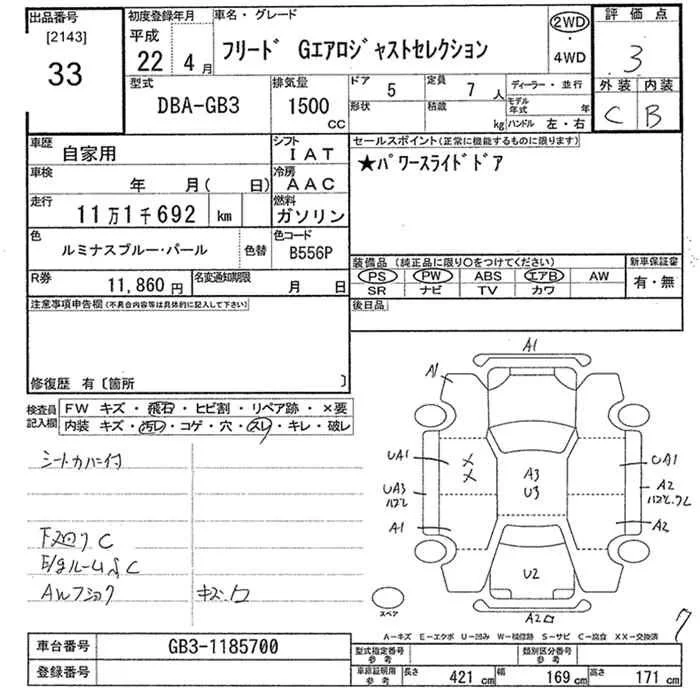 出品番号
[2143]
33
初度登録年月
平成
22年 4月
車名・グレード
フリード Gエアロジャストセレクション
2WD
・
4WD
評価点
3
外装 内装
C B
型式
DBA-GB3
排気量
1500
CC
ドア 5
定員 7人
ディーラー・並行
形状
積載 kg
モデル年式 年
ハンドル 左・右
車歴 自家用
シフト IAT
車検 年 月( 日)
冷房 AAC
走行 11万1千692 km
燃料 ガソリン
色 ルミナスブルー・パール
色替
色コード B556P
R券 11,860円
名変通知期限 月 日
セールスポイント(正常に機能するものに限ります)
★パワースライドドア
装備品 (純正品に限り〇をつけてください)
PS PW ABS エアB AW
SR ナビ TV カワ
新車保証書
有・無
後日品
注意事項申告欄(不具合内容等は具体的に記入して下さい)
修復歴 有〔箇所 〕
検査員記入欄
FW キズ・飛石・ヒビ割・リペア跡・×要
内装 キズ・汚レ・コゲ・穴・スレ・キレ・破レ
シートカバー付
下廻り C
E/gルーム C
AWフショク
キズ
A1
A1
UA1
UA3
A1
A3
U3
U2
UA1
A2
A2
A2
スペア
7
A−キズ E−エクボ U−凹み W−補修跡 S−サビ C−腐食 XX−交換済
車台番号 GB3-1185700
登録番号
型式指定番号 参考
類別区分番号 参考
車庫証明用 参考
長さ 421 cm
幅 169 cm
高さ 171 cm